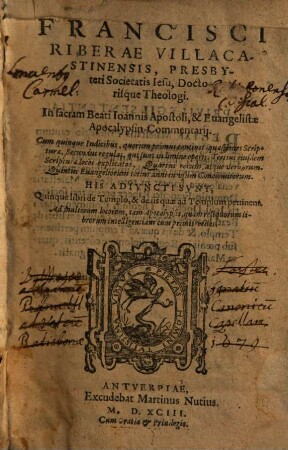 FRANCISCI
RIBERAE VILLACA-
STINENSIS, PRESBY-
teri Societatis Iesu, Docto-
risque Theologi.
In sacram Beati Ioannis Apostoli, & Euangelistæ
Apocalypsin Commentarij.
Cum quinque Indicibus, quorum primus continet quæstiones Scriptu-
ræ, Secundus regulas, Tertius
Scripturæ locos explicatos, Quartus rerum, atque verborum,
Quintus Euangeliorum totius anni
HIS ADIVNCTI SVNT,
Quinque libri de Templo, & de iis quæ ad Templum pertinent.
Ad multorum locorum, tam Apocalypsis, quàm reliquorum
librorum intelligentiam cum primis vtiles.
ANTVERPIAE,
Excudebat Martinus Nutius.
M. D. XCIII.
Cum Gratia & Priuilegio.
Canonicũ
Capellam